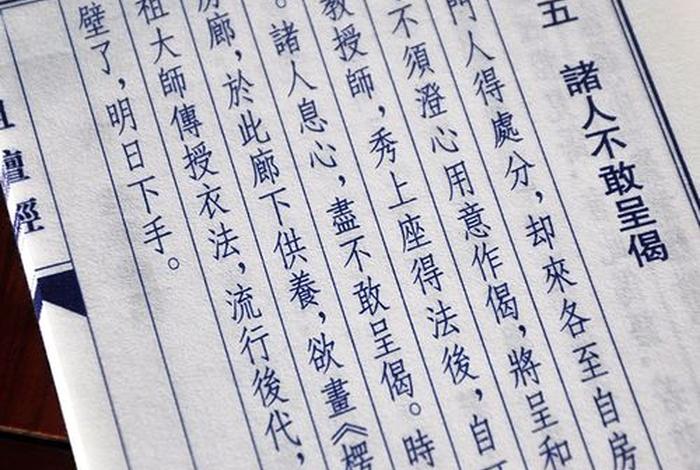 五 諸人不敢呈偈
門人得處分，却來各至自房
不須澄心用意作偈，將呈和
教授師，秀上座得法後，自
。諸人息心，盡不敢呈偈。時
房廊，於此廊下供養，欲畫《楞
祖大師傳授衣法，流行後代，
壁了，明日下手。
壇經